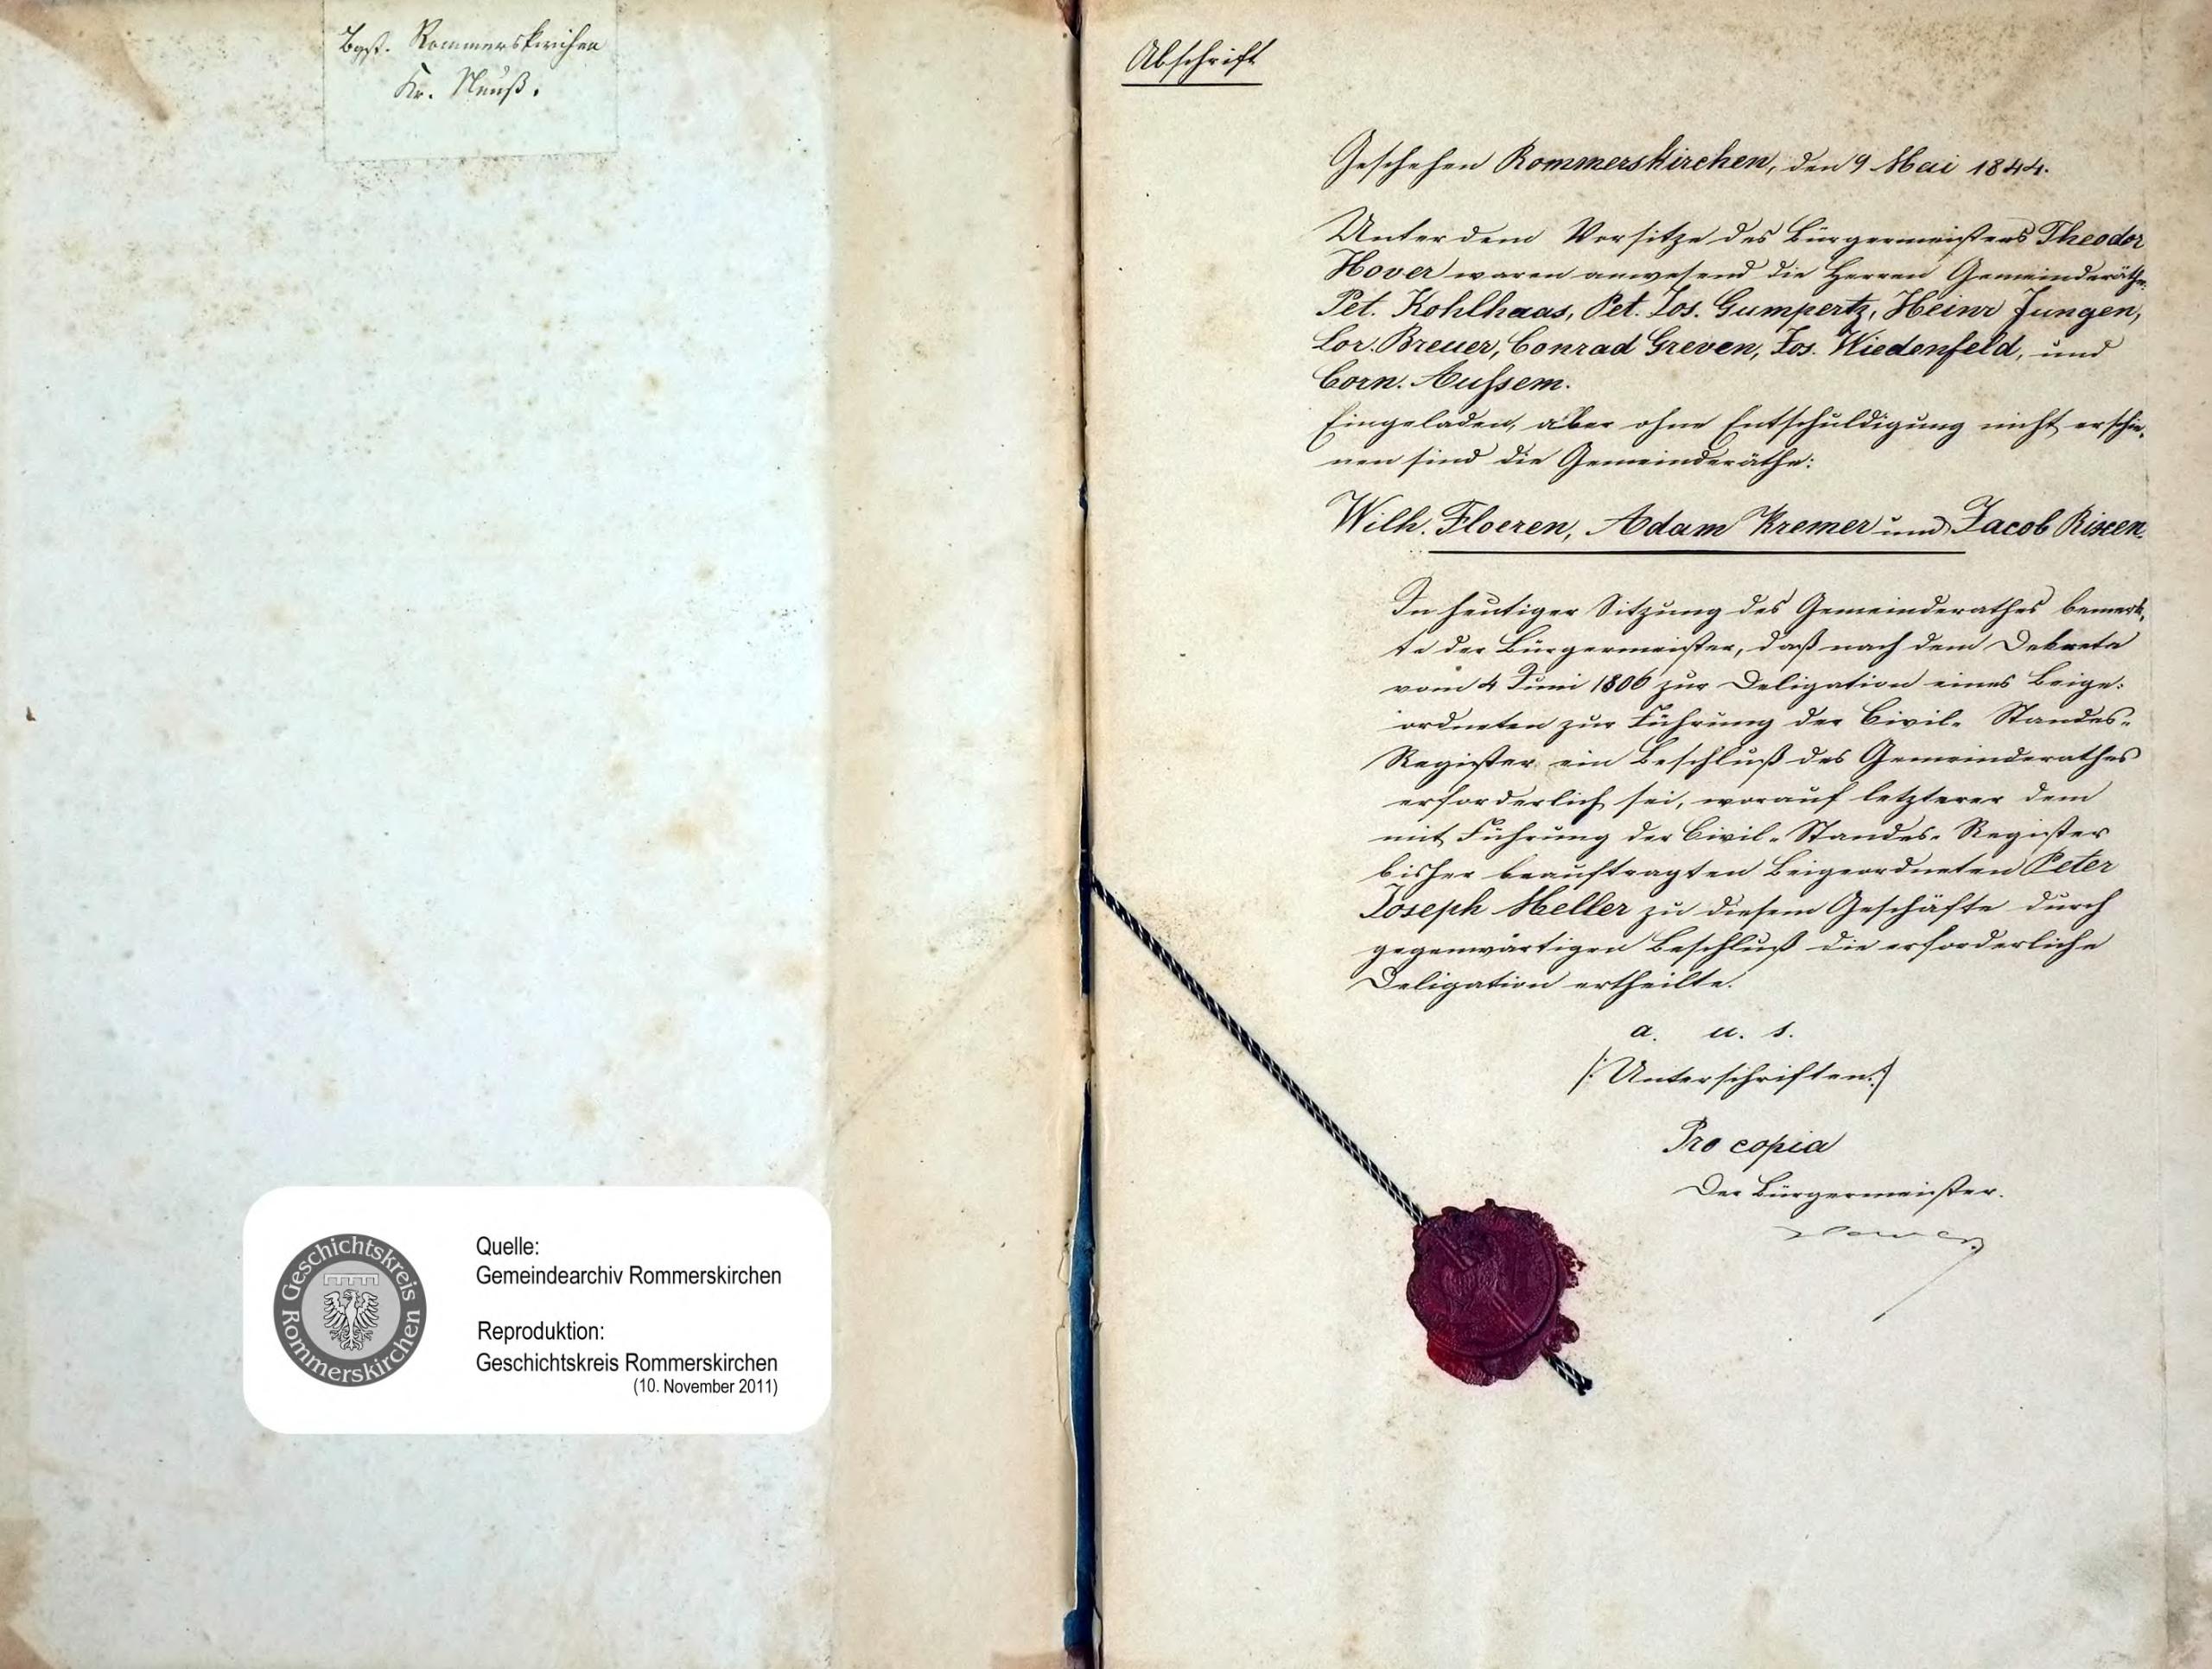 Bgst. Rommerskirchen
Kr. Neuß.
Geschichtskreis
Rommerskirchen
Quelle:
Gemeindearchiv Rommerskirchen
Reproduktion:
Geschichtskreis Rommerskirchen
(10. November 2011)
Abschrift
Geschehen Rommerskirchen, den 9 Mai 1844.
Unter dem Vorsitze des Bürgermeisters Theodor
Hover waren anwesend die Herren Gemeinderäthe:
Pet. Kohlhaas, Pet. Jos. Gumpertz, Heinr Jungen,
Lor. Breuer, Conrad Greven, Jos. Wiedenfeld, und
Corn. Aussem.
Eingeladen, aber ohne Entschuldigung nicht erschie-
nen sind die Gemeinderäthe:
Wilh. Floeren, Adam Kremer und Jacob
In heutiger Sitzung des Gemeinderathes bemerk-
te der Bürgermeister, daß nach dem Dekrete
vom 4 Juni 1806 zur Deligation eines Beige-
ordneten zur Führung der Civil-Standes-
Register ein Beschluß des Gemeinderathes
erforderlich sei, worauf letzterer dem
mit Führung der Civil-Standes-Register
bisher beauftragten Beigeordneten Peter
Joseph Meller zu diesem Geschäfte durch
gegenwärtigen Beschluß die erforderliche
Deligation ertheilte.
a. u. s.
/: Unterschriften :/
Pro copia
Der Bürgermeister.
Hover